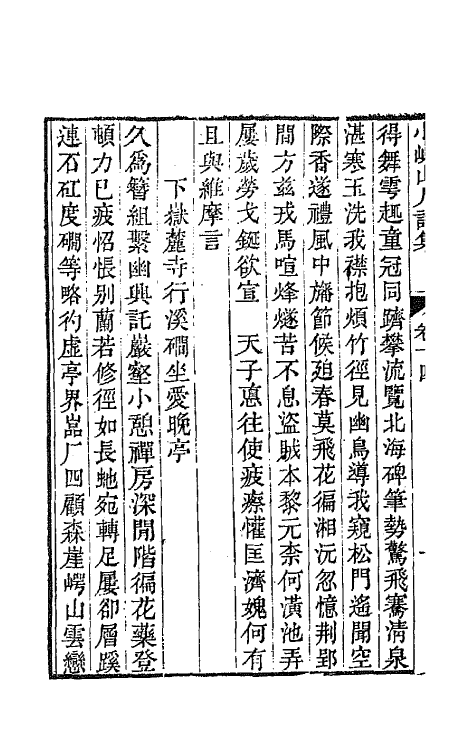 得舞雩趣童冠同躋攀流覽北海碑筆勢驚飛騫清泉
湛寒玉洗我襟抱煩竹徑見幽鳥導我窺松門遙聞空
際香遂禮風中旛節候廹春莫飛花徧湘沅忽憶荆郢
間方兹戎馬喧烽燧苦不息盜賊本黎元柰何潢池弄
屢歲勞戈鋋欲宣　天子惪往使疲瘵懽匡濟媿何有
且與維摩言
下嶽麓寺行溪磵坐愛晚亭
久爲簪組繫幽興託巖壑小憩禪房深閒階徧花藥登
頓力已疲怊悵别蘭若修徑如長虵宛轉足屢卻層蹊
連石矼度磵等略彴虛亭界嵓厂四顧森崖崿山雲戀